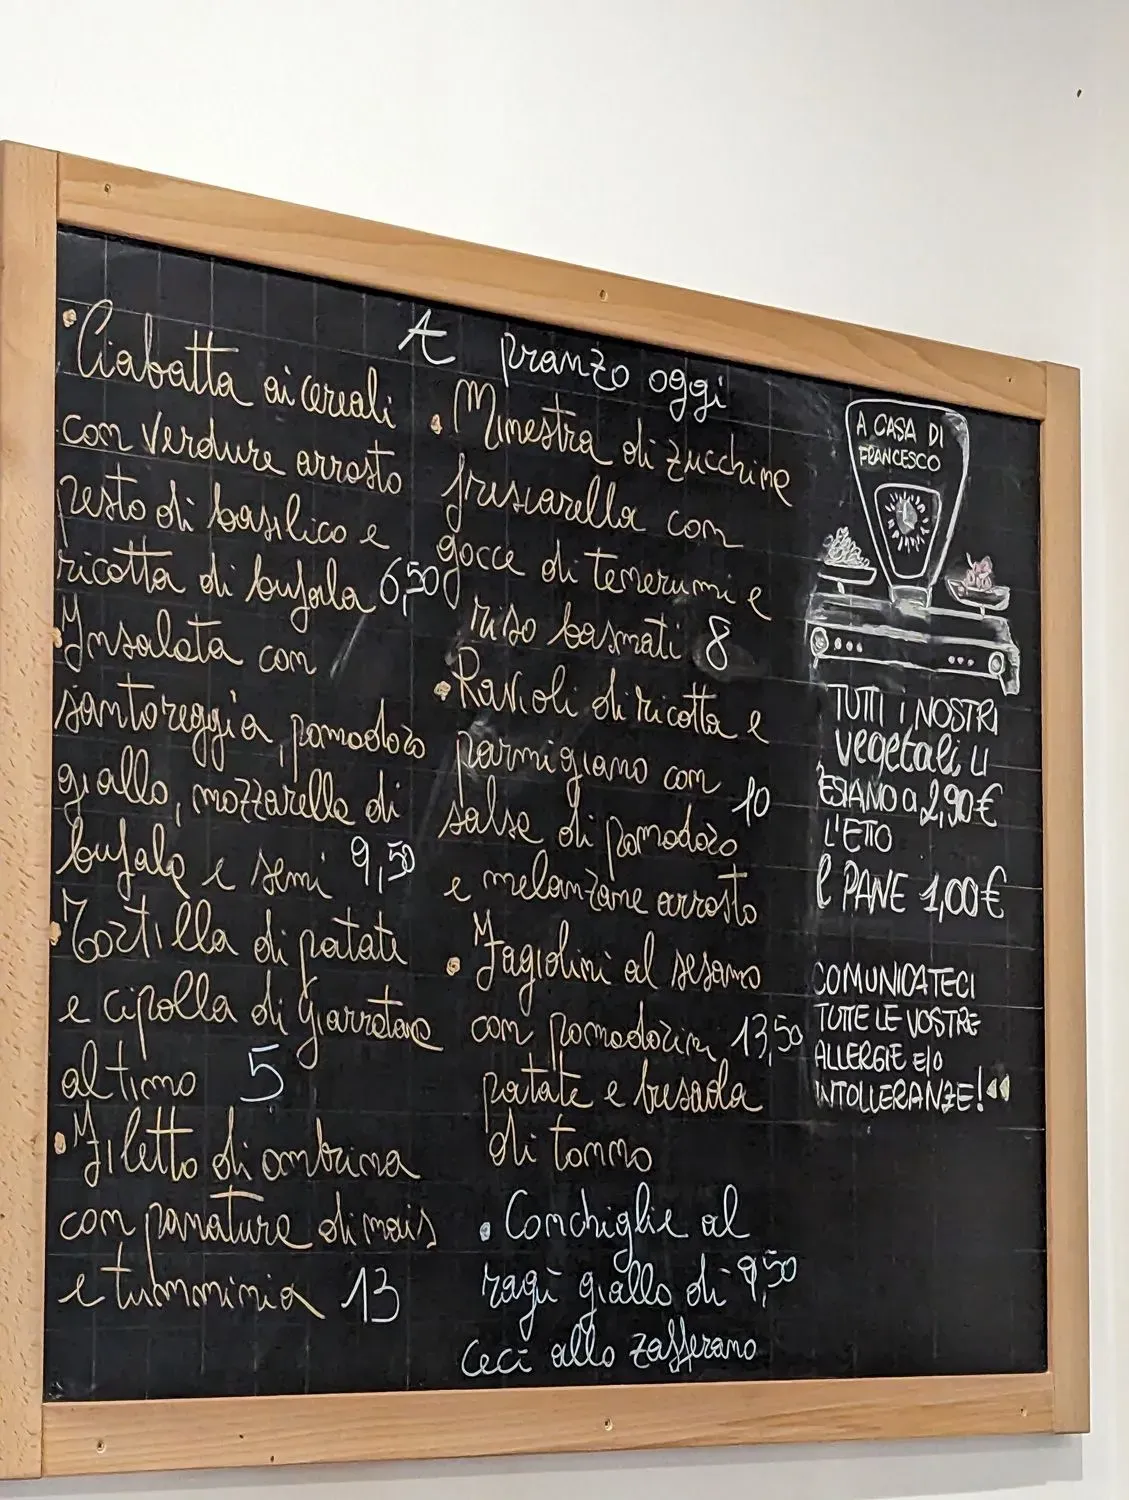 A pranzo oggi
• Ciabatta ai cereali
con verdure arrosto
pesto di basilico e
ricotta di bufala 6,50
• Insalata con
santoreggia, pomodoro
giallo, mozzarella di
bufala e semi 9,50
• Tortilla di patate
e cipolla di Giarratana
al timo 5
• Filetto di ombrina
con panatura di mais
e tumminia 13
• Minestra di zucchina
friscarella con
gocce di tenerumi e
riso basmati 8
• Ravioli di ricotta e
parmigiano con 10
salsa di pomodoro
e melanzane arrosto
• Fagiolini al sesamo
con pomodorini 13,50
patate e bresaola
di tonno
• Conchiglie al
ragù giallo di 9,50
ceci allo zafferano
A CASA DI
FRANCESCO
TUTTI I NOSTRI
vegetali, LI
ESIAMO a 2,90 €
L'ETTO
il PANE 1,00 €
COMUNICATECI
TUTTE LE VOSTRE
ALLERGIE E/O
INTOLLERANZE!